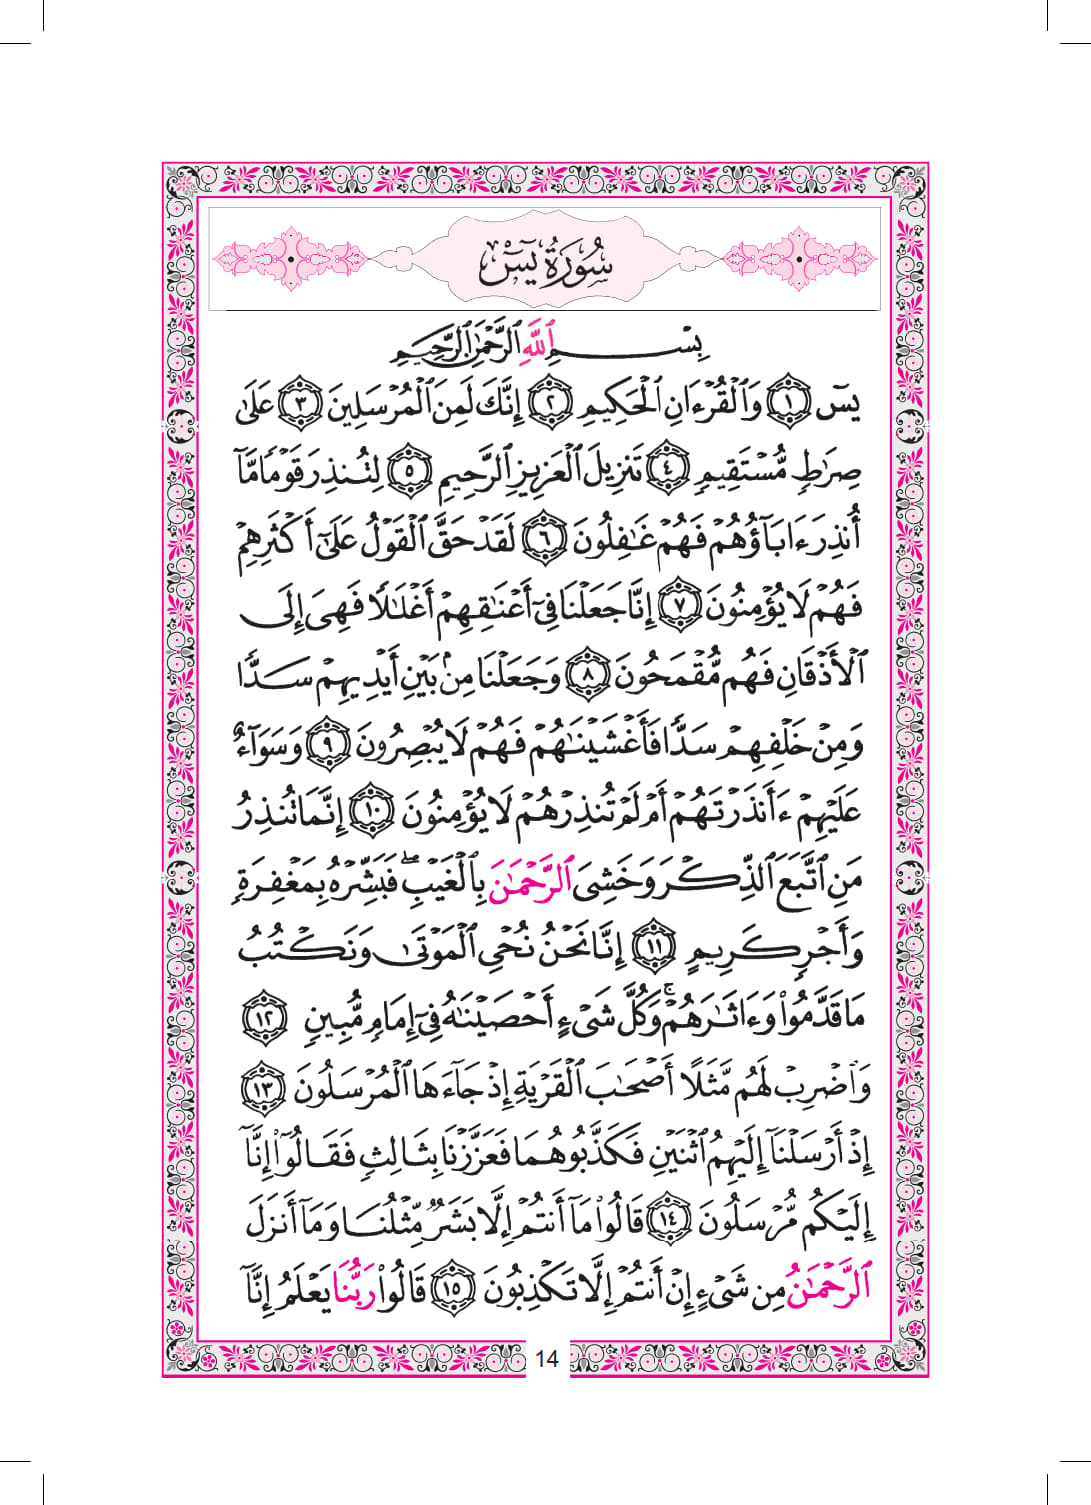 سُورَةُ يسٓ
بِسْمِ ٱللَّهِ ٱلرَّحْمَٰنِ ٱلرَّحِيمِ
يسٓ ١ وَٱلْقُرْءَانِ ٱلْحَكِيمِ ٢ إِنَّكَ لَمِنَ ٱلْمُرْسَلِينَ ٣ عَلَىٰ
صِرَٰطٍ مُّسْتَقِيمٍ ٤ تَنزِيلَ ٱلْعَزِيزِ ٱلرَّحِيمِ ٥ لِتُنذِرَ قَوْمًا مَّآ
أُنذِرَ ءَابَآؤُهُمْ فَهُمْ غَٰفِلُونَ ٦ لَقَدْ حَقَّ ٱلْقَوْلُ عَلَىٰٓ أَكْثَرِهِمْ
فَهُمْ لَا يُؤْمِنُونَ ٧ إِنَّا جَعَلْنَا فِىٓ أَعْنَٰقِهِمْ أَغْلَٰلًا فَهِىَ إِلَى
ٱلْأَذْقَانِ فَهُم مُّقْمَحُونَ ٨ وَجَعَلْنَا مِنۢ بَيْنِ أَيْدِيهِمْ سَدًّا
وَمِنْ خَلْفِهِمْ سَدًّا فَأَغْشَيْنَٰهُمْ فَهُمْ لَا يُبْصِرُونَ ٩ وَسَوَآءٌ
عَلَيْهِمْ ءَأَنذَرْتَهُمْ أَمْ لَمْ تُنذِرْهُمْ لَا يُؤْمِنُونَ ١٠ إِنَّمَا تُنذِرُ
مَنِ ٱتَّبَعَ ٱلذِّكْرَ وَخَشِىَ ٱلرَّحْمَٰنَ بِٱلْغَيْبِ ۖ فَبَشِّرْهُ بِمَغْفِرَةٍ
وَأَجْرٍ كَرِيمٍ ١١ إِنَّا نَحْنُ نُحْىِ ٱلْمَوْتَىٰ وَنَكْتُبُ
مَا قَدَّمُوا۟ وَءَاثَٰرَهُمْ ۚ وَكُلَّ شَىْءٍ أَحْصَيْنَٰهُ فِىٓ إِمَامٍ مُّبِينٍ ١٢
وَٱضْرِبْ لَهُم مَّثَلًا أَصْحَٰبَ ٱلْقَرْيَةِ إِذْ جَآءَهَا ٱلْمُرْسَلُونَ ١٣
إِذْ أَرْسَلْنَآ إِلَيْهِمُ ٱثْنَيْنِ فَكَذَّبُوهُمَا فَعَزَّزْنَا بِثَالِثٍ فَقَالُوٓا۟ إِنَّآ
إِلَيْكُم مُّرْسَلُونَ ١٤ قَالُوا۟ مَآ أَنتُمْ إِلَّا بَشَرٌ مِّثْلُنَا وَمَآ أَنزَلَ
ٱلرَّحْمَٰنُ مِن شَىْءٍ إِنْ أَنتُمْ إِلَّا تَكْذِبُونَ ١٥ قَالُوا۟ رَبُّنَا يَعْلَمُ إِنَّآ
14